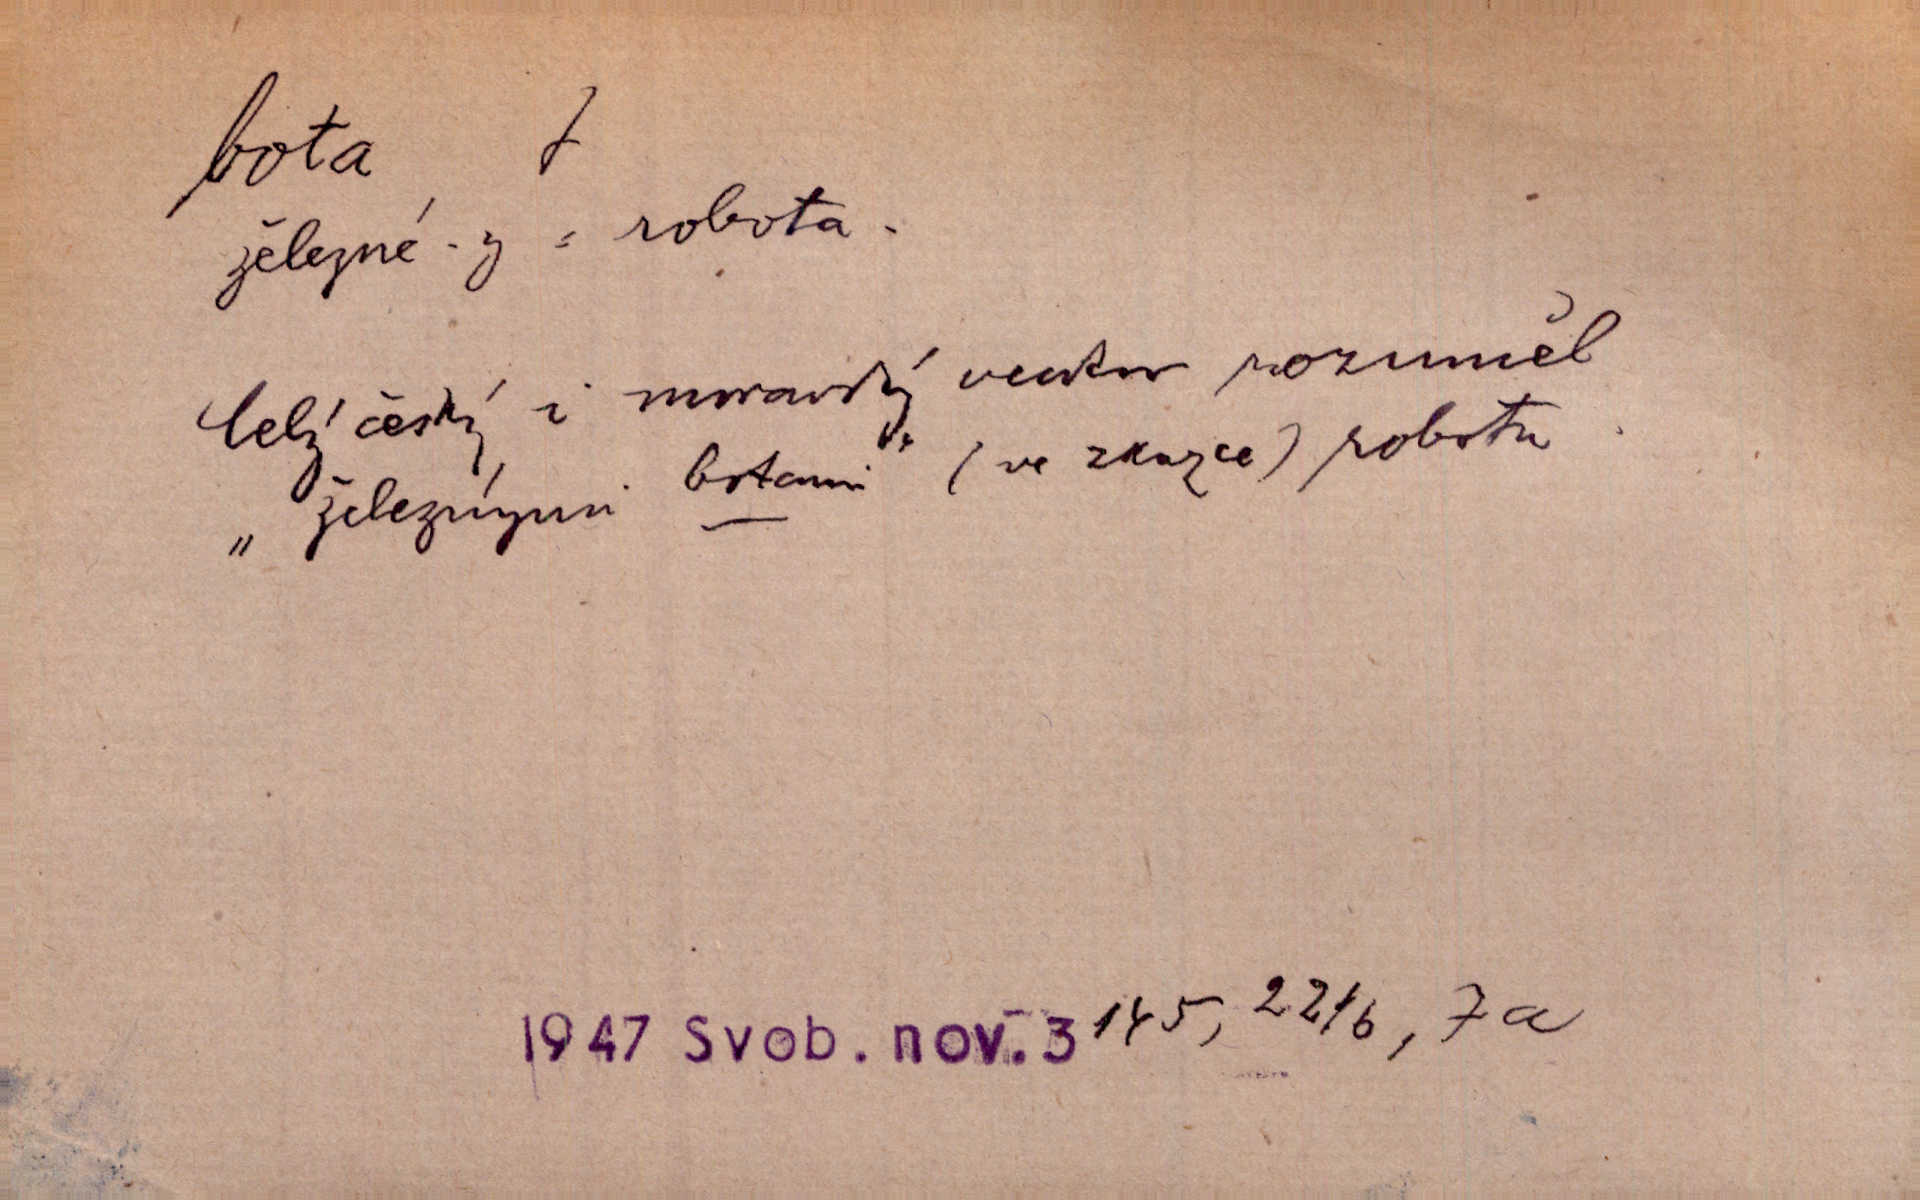 bota f
železné -y = robota.
Celý český i moravský venkov rozuměl
„železnými botami" (ve zkazce) robotu.
1947 Svob. nov. 3 145, 22/6, 7a